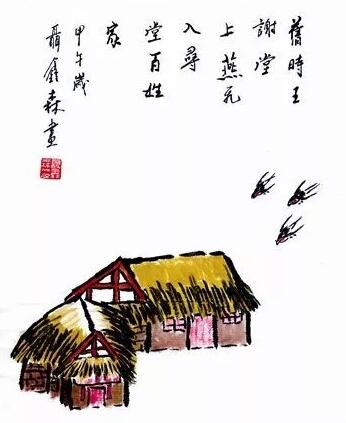 舊時王
謝堂
上燕飛
入尋
堂百姓
家
甲午歲
聶鑫森畫